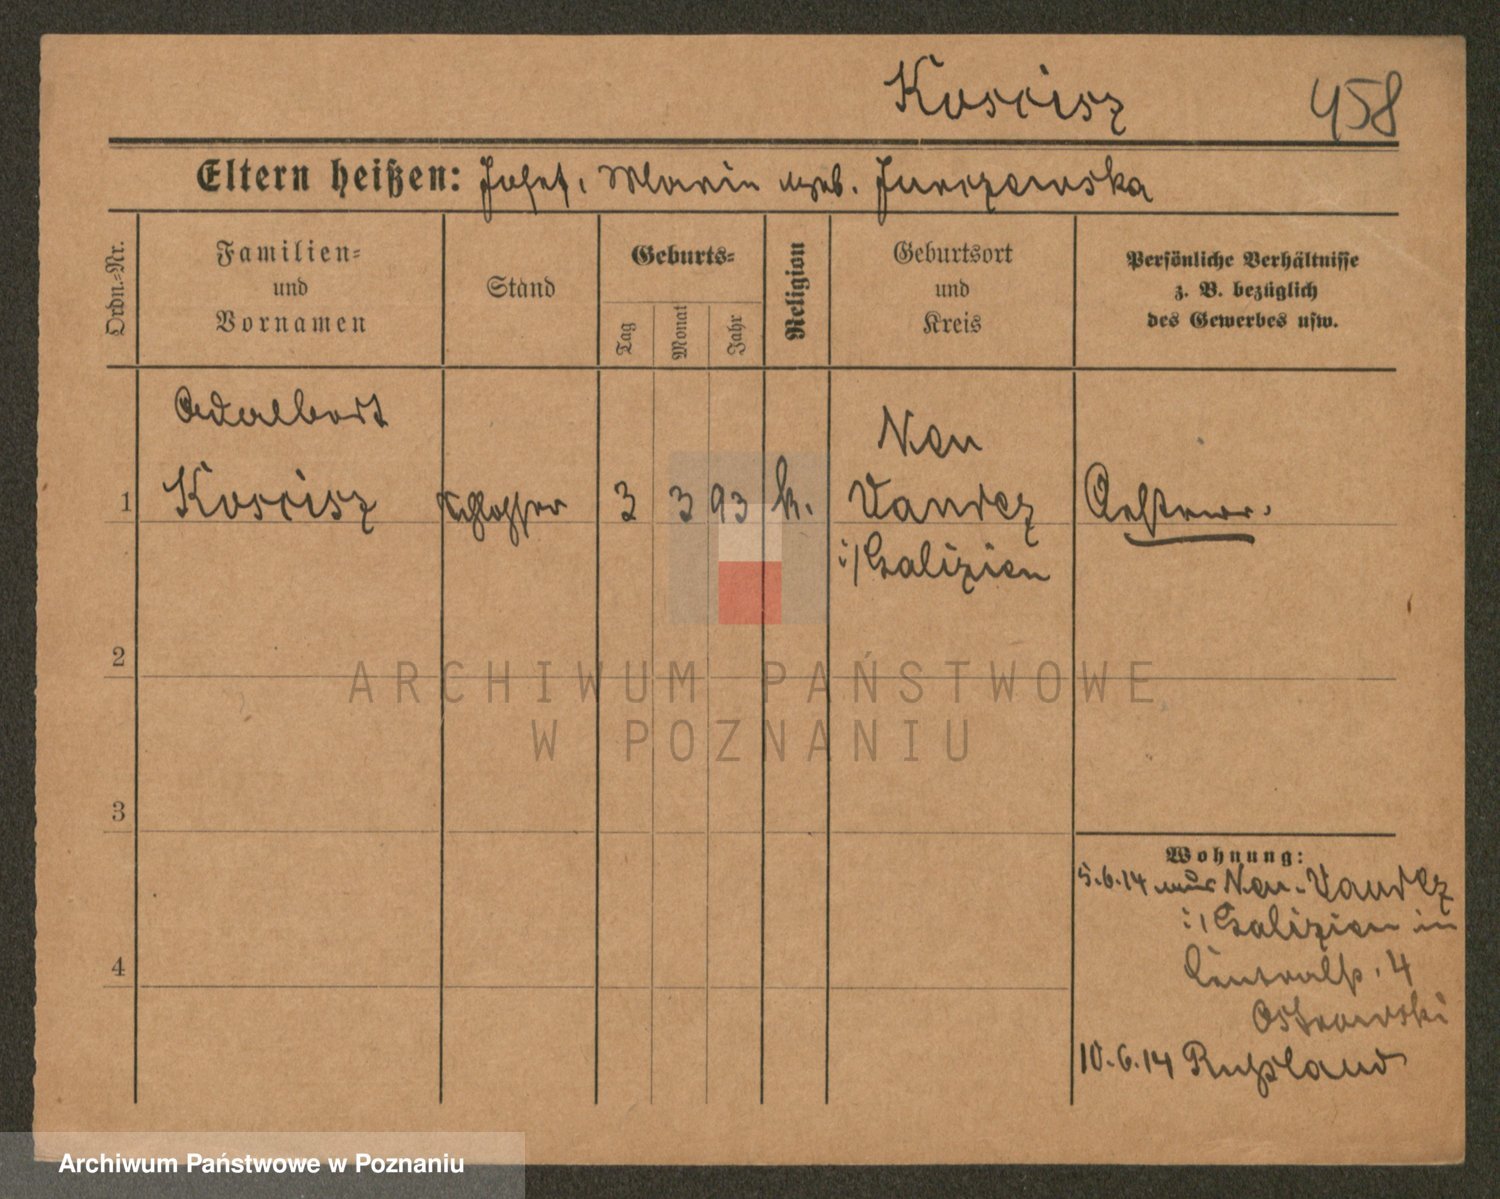 Koscisz 458
Eltern heißen: Josef, Marie geb. Jurczewska
Ordn.-Nr.
Familien-
und
Vornamen
Stand
Geburts-
Tag
Monat
Jahr
Religion
Geburtsort
und
Kreis
Persönliche Verhältnisse
z. B. bezüglich
des Gewerbes usw.
Adalbert
1 Koscisz Schlosser 3 3 93 k.
Neu
Sandez
i/Galizien
Oesterr.
2
3
4
Wohnung:
5.6.14 aus Neu-Sandez
i/Galizien in
Centralstr. 4
Ostrowski
10.6.14 Rußland
ARCHIWUM PAŃSTWOWE
W POZNANIU
Archiwum Państwowe w Poznaniu